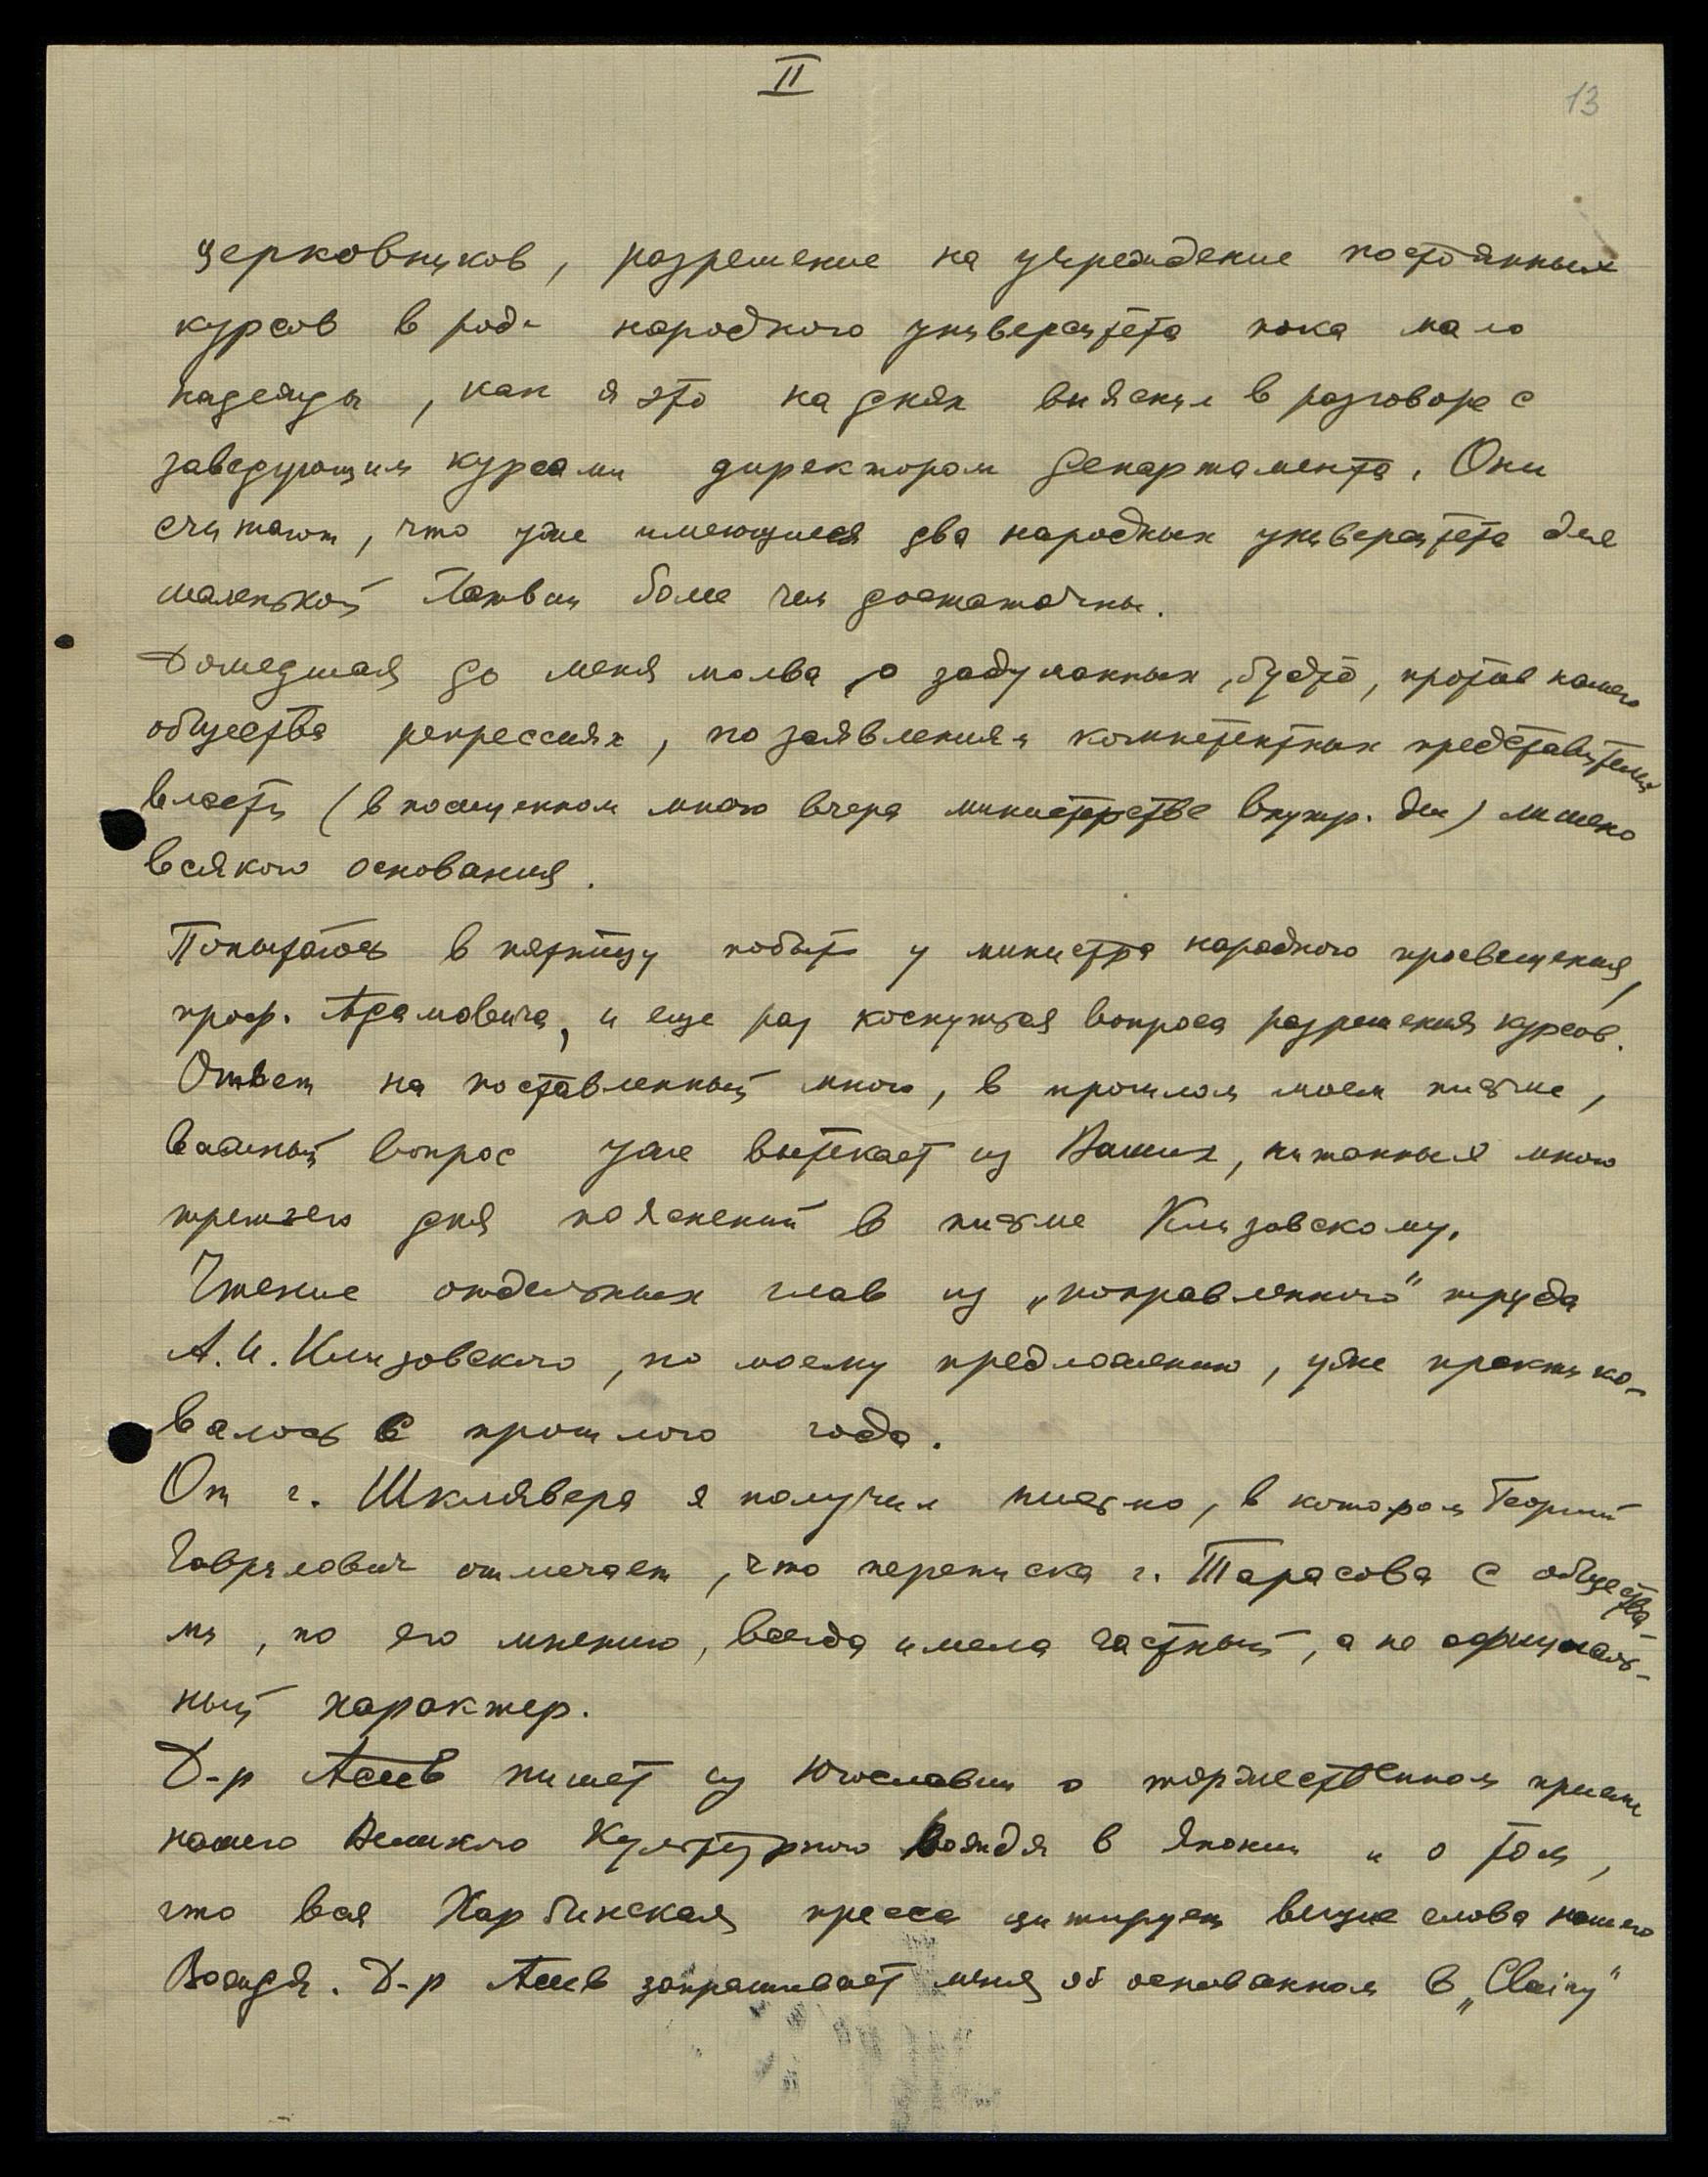 II
13
церковников, разрешение на учреждение постоянных
курсов в роде народного университета пока мало
надежды, как я это на днях выяснил в разговоре с
заведующим курсами директором департамента. Они
считают, что уже имеющиеся два народных университета для
маленькой Латвии более чем достаточны.
Дошедшая до меня молва, о задуманных, будто, против нашего
общества репрессиях, по заявлениям компетентных представителей
власти (в посещенном мною вчера министерстве внутр. дел) лишено
всякого основания.
Попытаюсь в пятницу побыть у министра народного просвещения,
проф. Адамовича, и еще раз коснуться вопроса разрешения курсов.
Ответ на поставленный мною, в прошлом моем письме,
важный вопрос уже вытекает из Ваших, читанных мною
третьего дня пояснений в письме Клизовскому.
Чтение отдельных глав из „поправленного" труда
А.И. Клизовского, по моему предложению, уже практико-
валось с прошлого года.
От г. Шклявера я получил письмо, в котором Георгий
Гаврилович отмечает, что переписка г. Тарасова с общества-
ми, по его мнению, всегда имела частный, а не официаль-
ный характер.
Д-р Асеев пишет из Югославии о торжественном приеме
нашего Великого Культурного Вождя в Японии и о том,
что вся Харбинская пресса цитирует вещие слова нашего
Вождя. Д-р Асеев запрашивает меня об основанном в